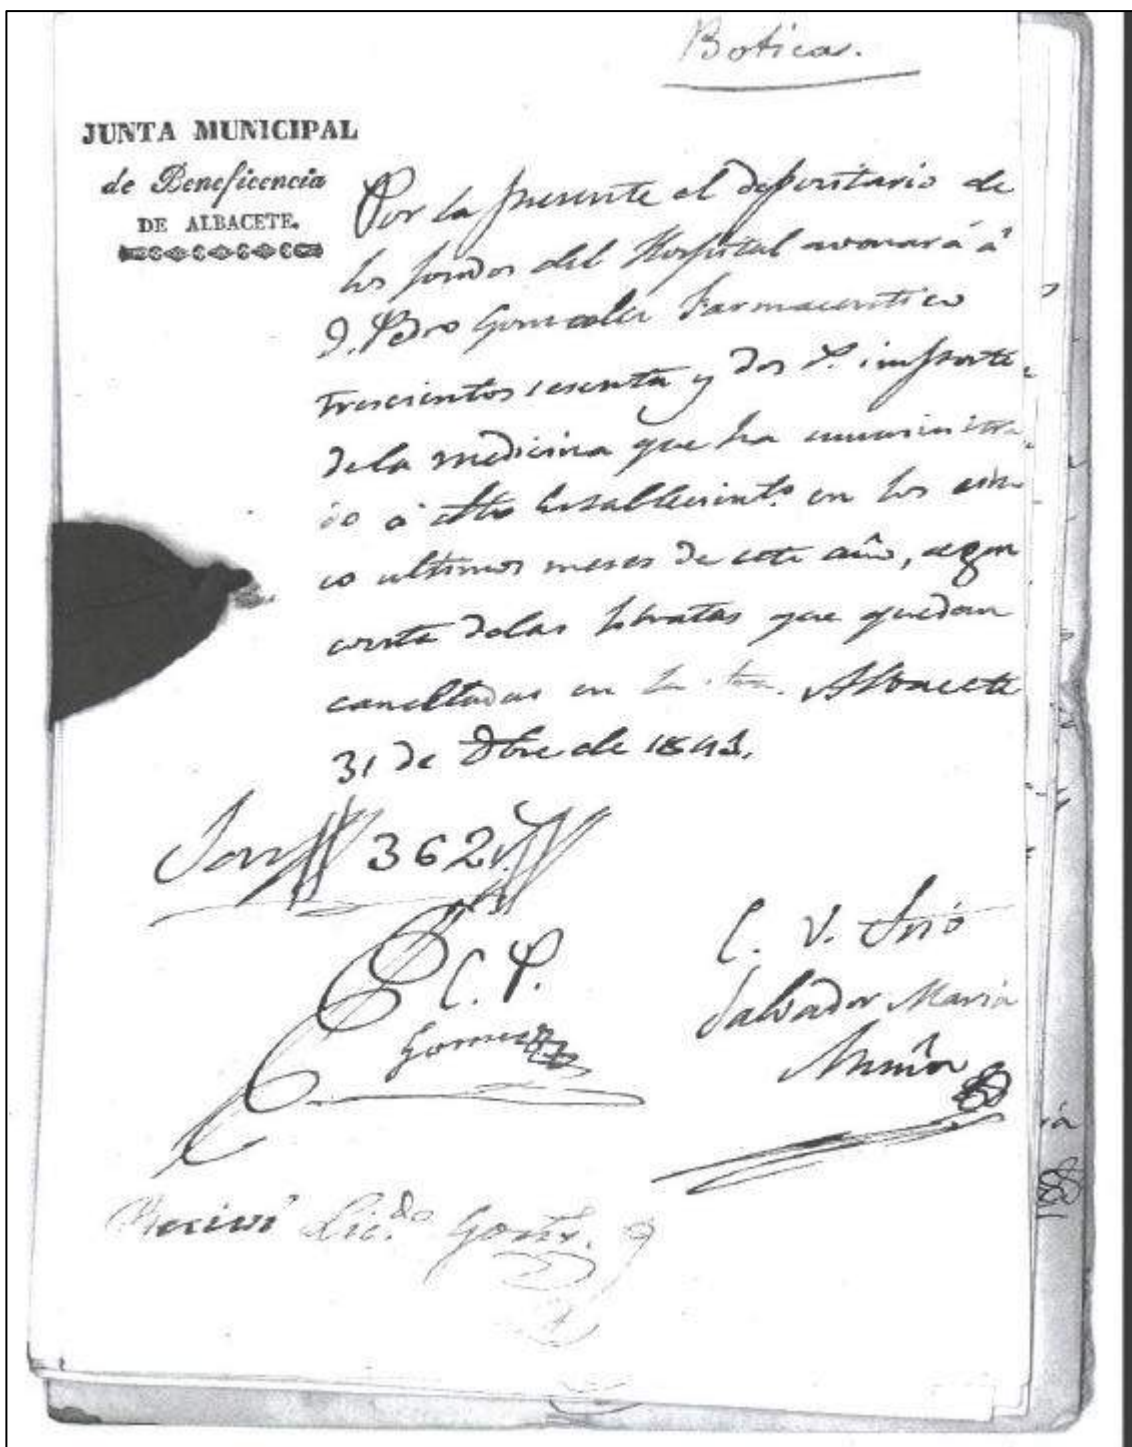 Boticas.
JUNTA MUNICIPAL
de Beneficencia
DE ALBACETE.
Por la presente el depositario de
los fondos del Hospital avonará á
D. Pedro Gonzalez Farmaceutico
trescientos sesenta y dos r. importe
de la medicina que ha suministra
do á este Establecimto. en los cin
co ultimos meses de este año, segun
consta de las que quedan
canceltadas en la Albacete
31 de Dbre de 1843.
Son 362
C. P.
Gomez
C. V. Srio
Salvador Maria
Recivi Lic.do Gonz.